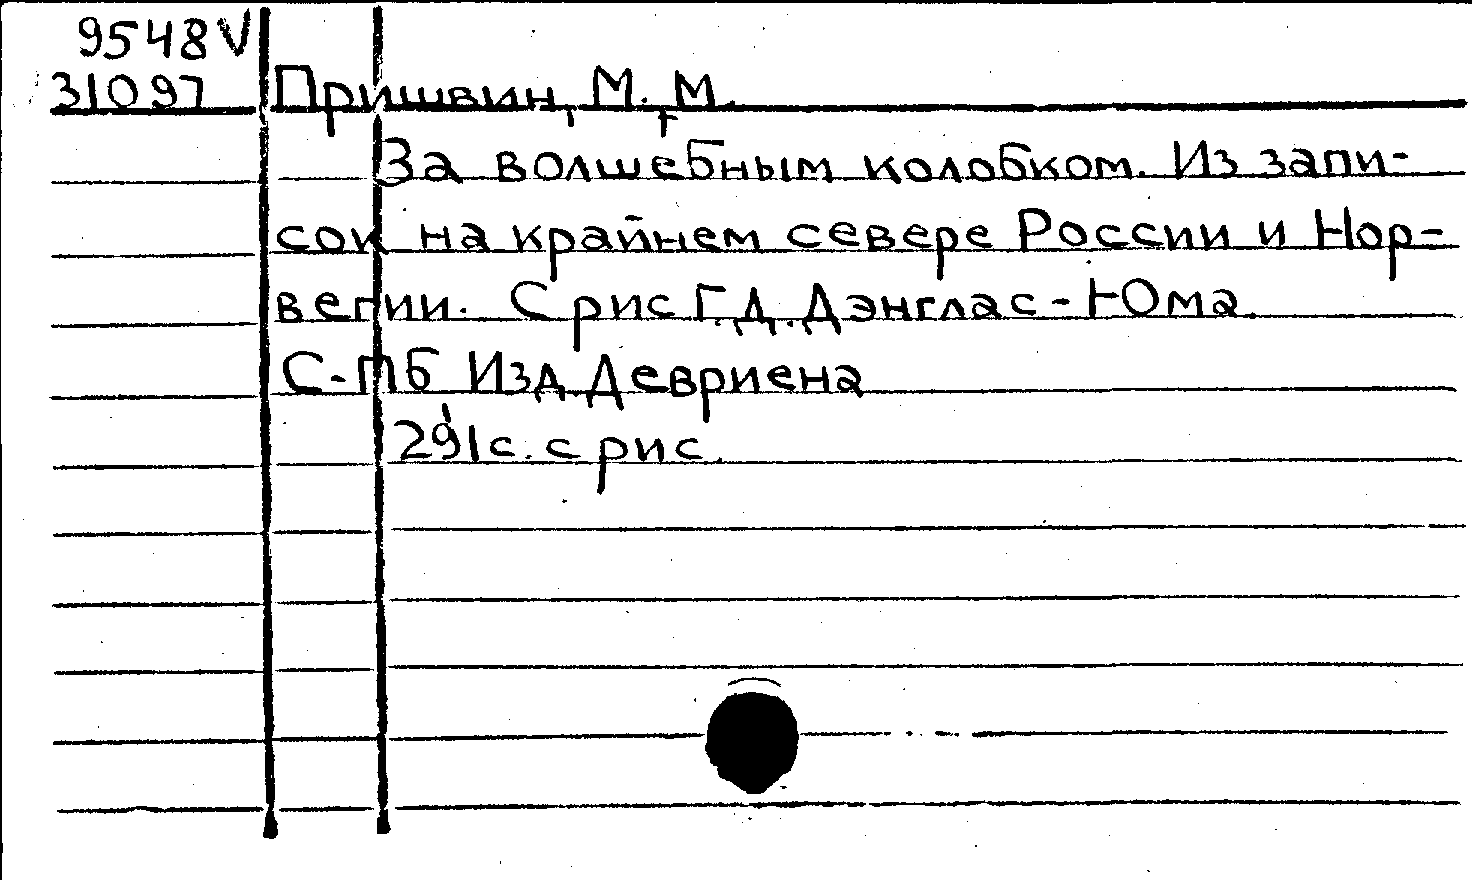 9548V
31097 Пришвин, М. М.
За волшебным колобком. Из запи-
сок на крайнем севере России и Нор-
вегии. С рис Г. Д. Дэнглас-Юма.
С-Пб Изд. Девриена
291 с. с рис.